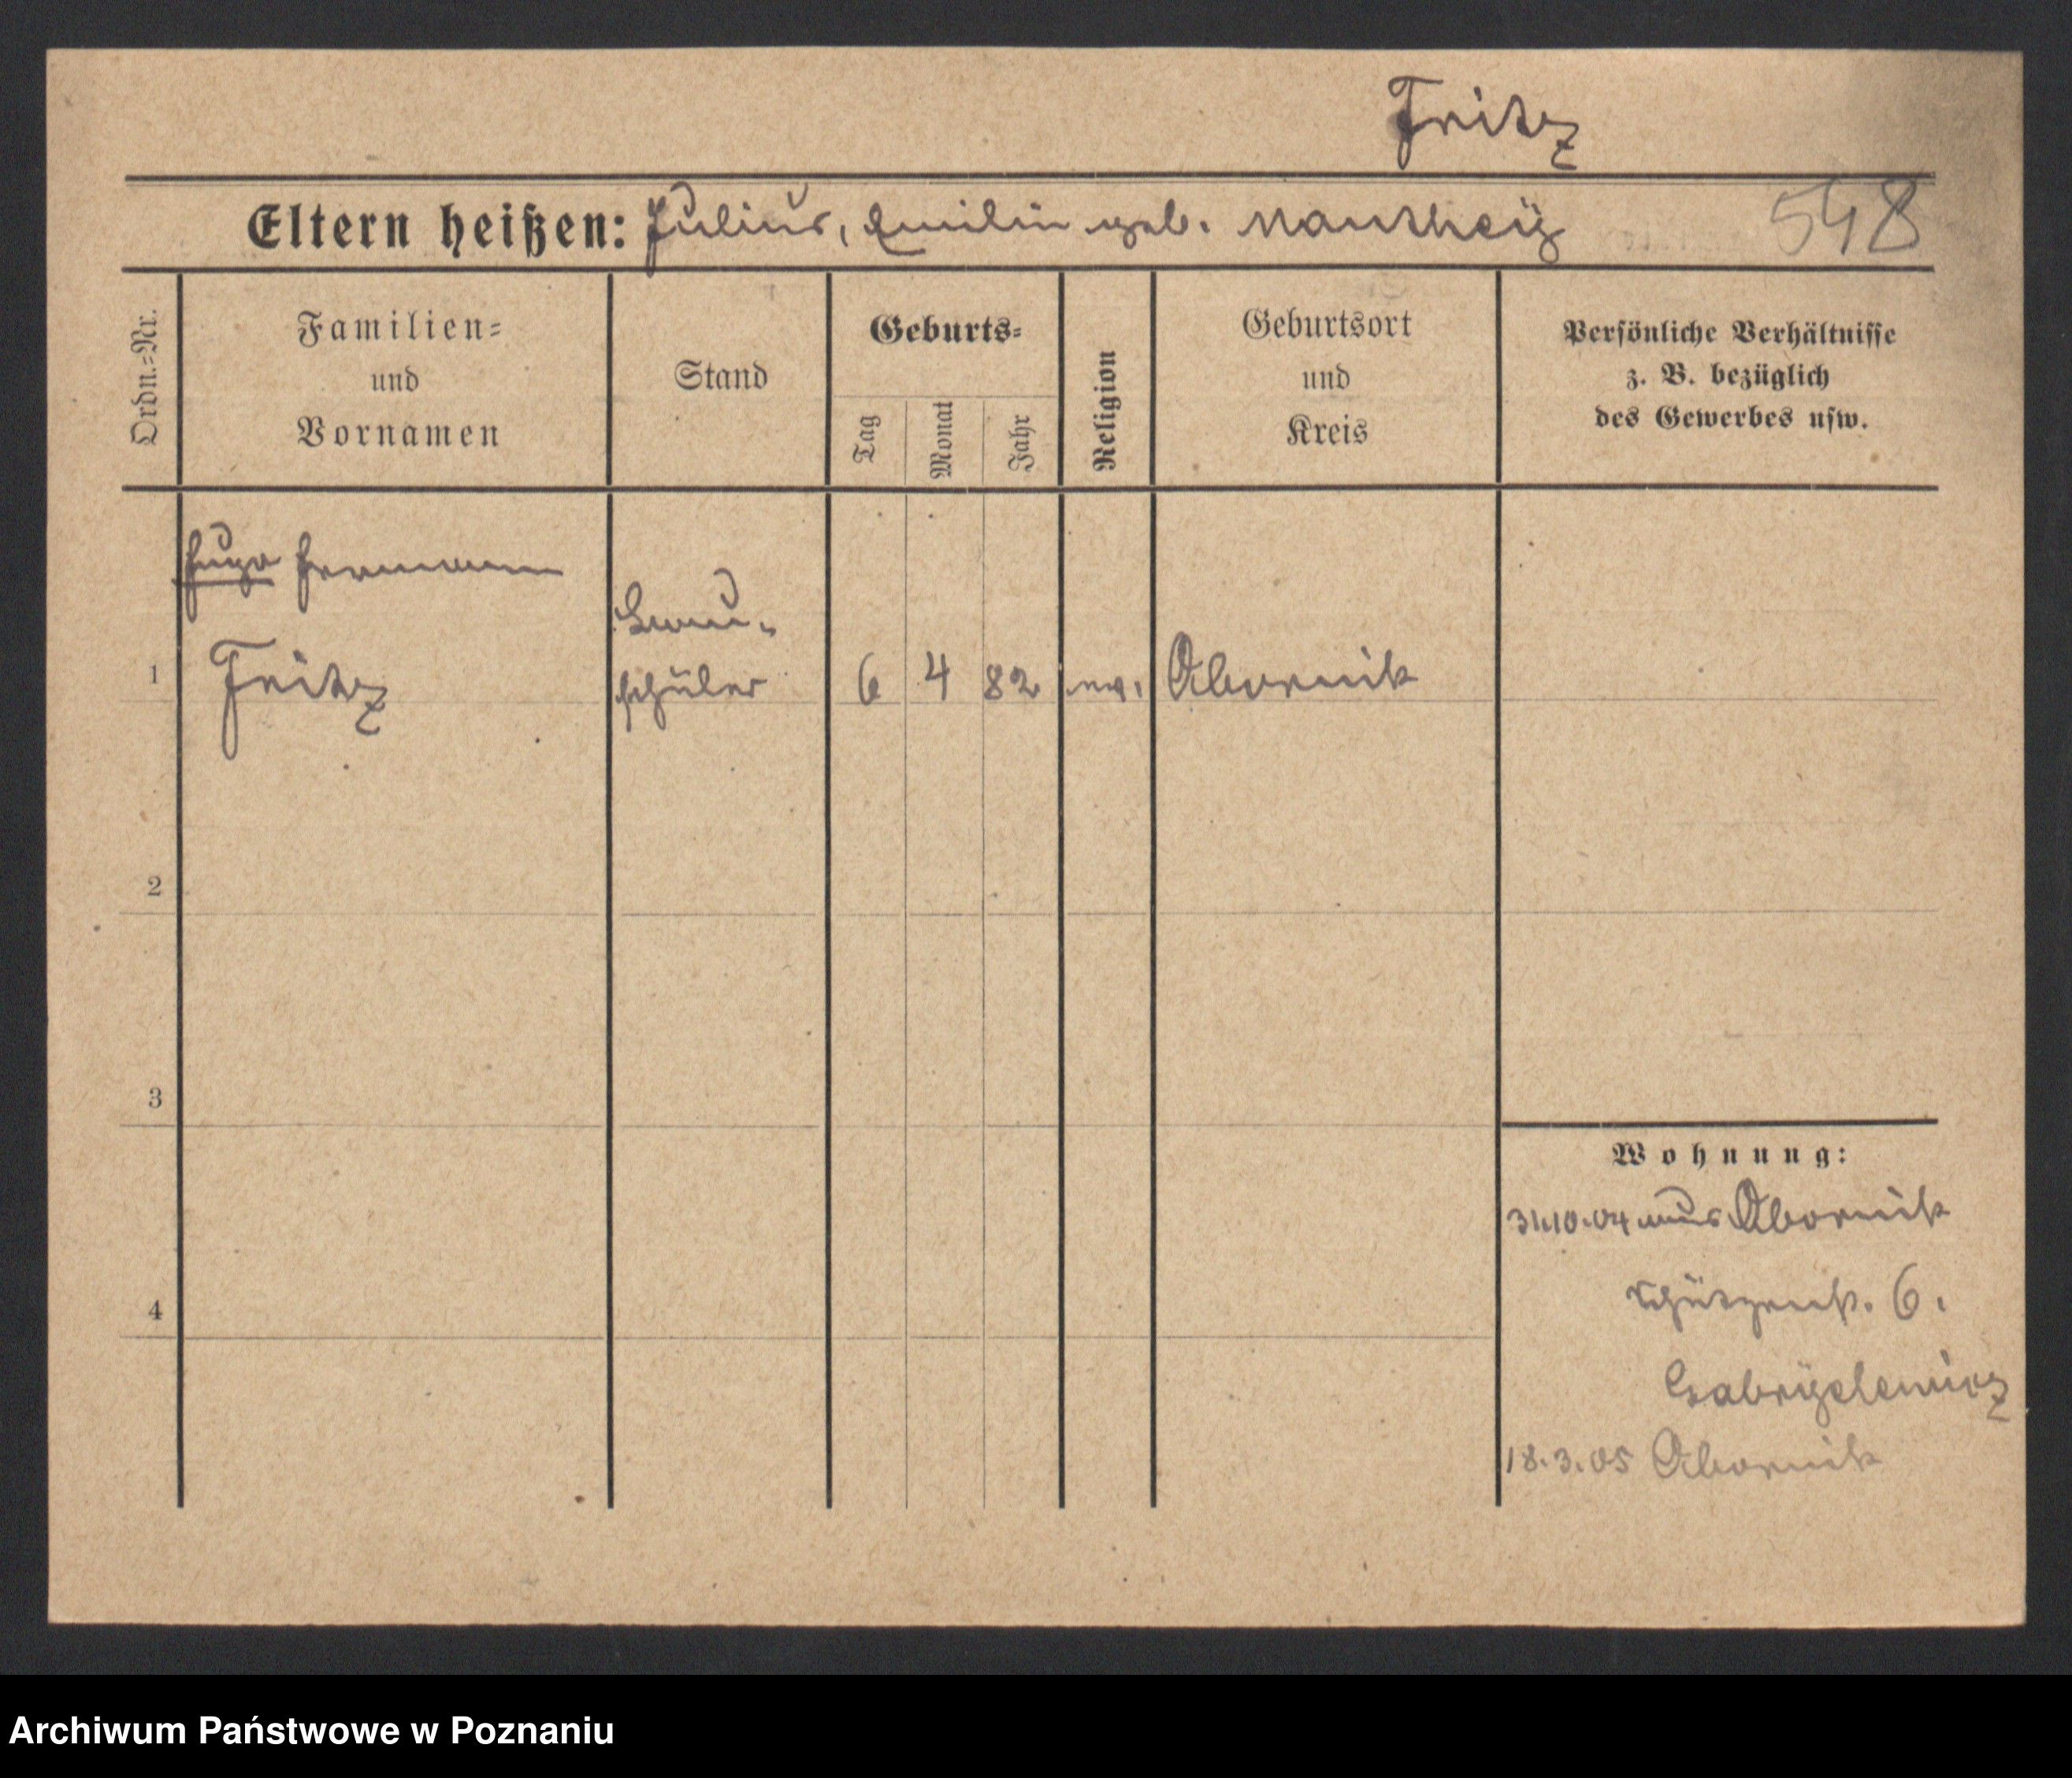 Fritz
Eltern heißen: Julius, Emilie geb. Manthey
548
Ordn.=Nr.
Familien=
und
Vornamen
Stand
Geburts=
Tag
Monat
Jahr
Religion
Geburtsort
und
Kreis
Persönliche Verhältnisse
z. B. bezüglich
des Gewerbes usw.
Hugo Hermann
1 Fritz
Bau-
schüler
6 4 82 ev. Obornik
2
3
4
Wohnung:
31.10.04 aus Obornik
Schützenstr. 6.
Gabryelewicz
18.3.05 Obornik
Archiwum Państwowe w Poznaniu